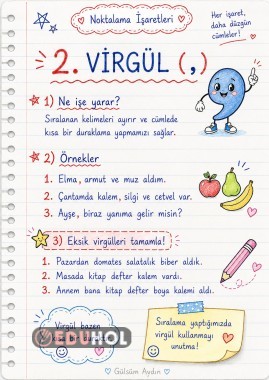 Noktalama İşaretleri
Her işaret,
daha düzgün
cümleler!
2. VİRGÜL (,)
1) Ne işe yarar?
Sıralanan kelimeleri ayırır ve cümlede
kısa bir duraklama yapmamızı sağlar.
2) Örnekler
1. Elma, armut ve muz aldım.
2. Çantamda kalem, silgi ve cetvel var.
3. Ayşe, biraz yanıma gelir misin?
3) Eksik virgülleri tamamla!
1. Pazardan domates salatalık biber aldık.
2. Masada kitap defter kalem vardı.
3. Annem bana kitap defter boya kalemi aldı.
Virgül bazen
EDUHOL
Sıralama yaptığımızda
virgül kullanmayı
unutma!
Gülsüm Aydın